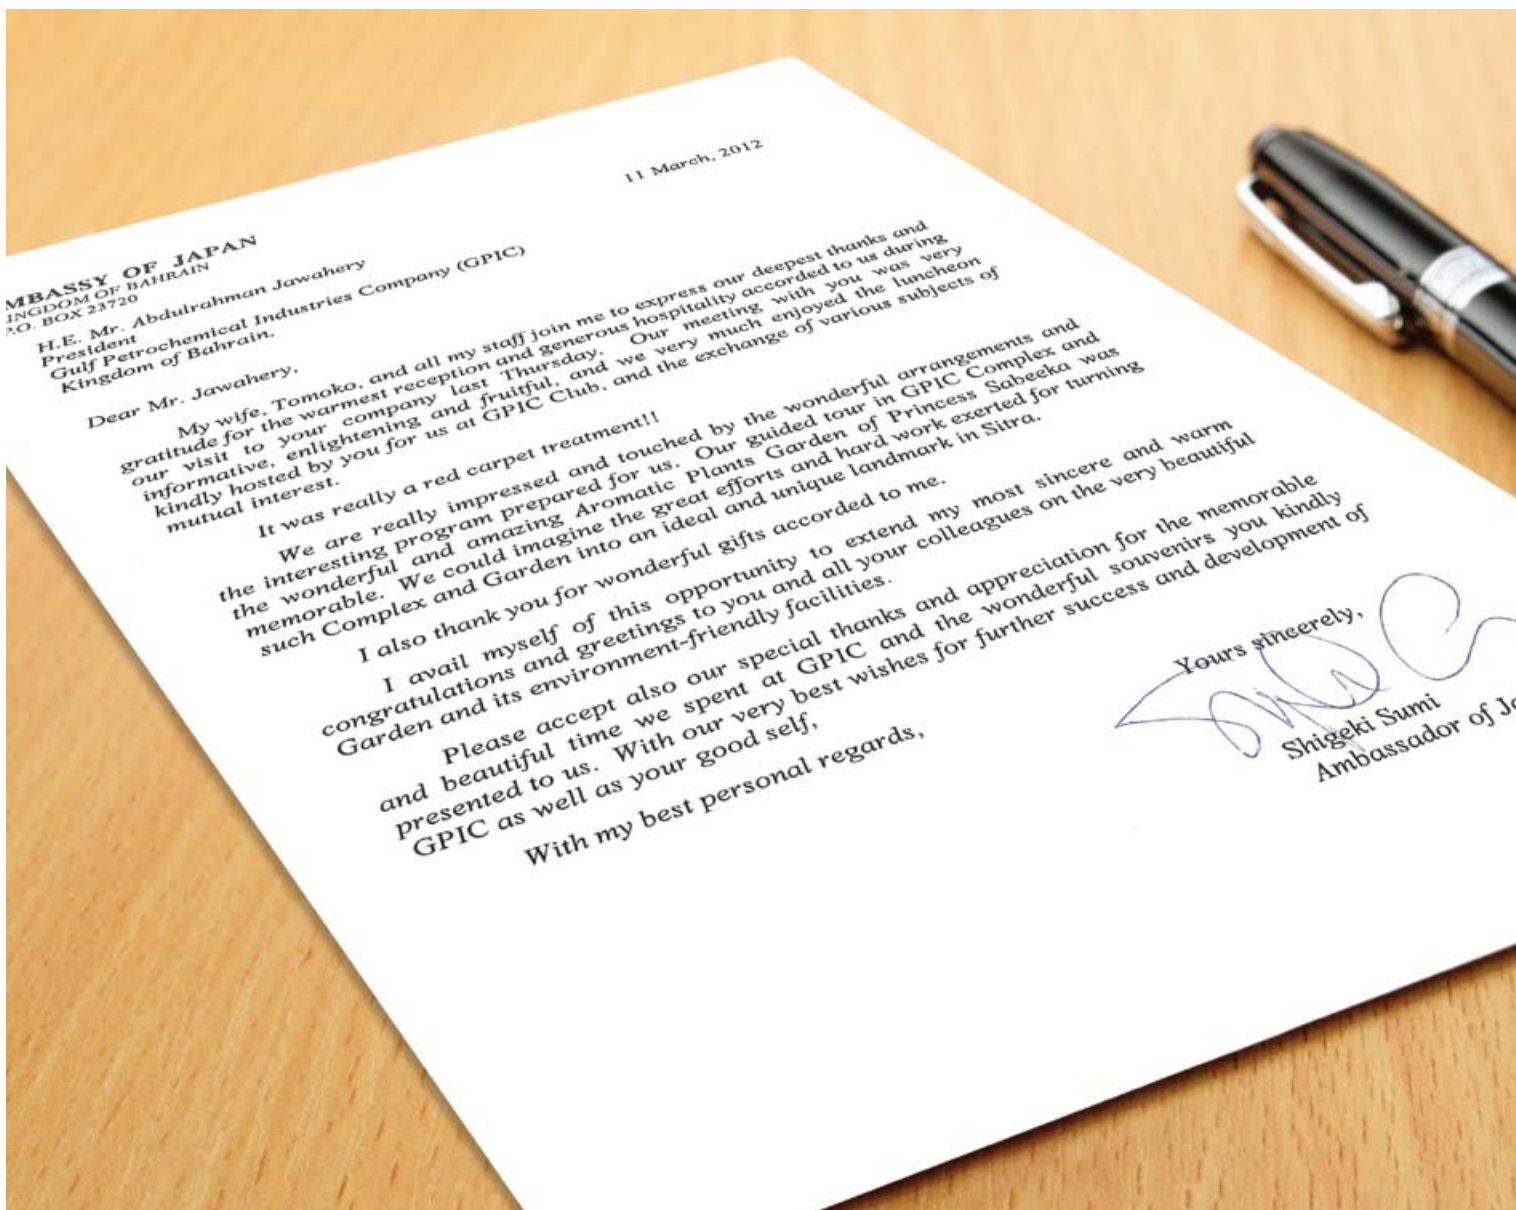 11 March, 2012
MBASSY OF JAPAN
INGDOM OF BAHRAIN
P.O. BOX 23720
H.E. Mr. Abdulrahman Jawahery
President
Gulf Petrochemical Industries Company (GPIC)
Kingdom of Bahrain.
Dear Mr. Jawahery,
My wife, Tomoko, and all my staff join me to express our deepest thanks and
gratitude for the warmest reception and generous hospitality accorded to us during
our visit to your company last Thursday. Our meeting with you was very
informative, enlightening and fruitful, and we very much enjoyed the luncheon
kindly hosted by you for us at GPIC Club, and the exchange of various subjects of
mutual interest.
It was really a red carpet treatment!!
We are really impressed and touched by the wonderful arrangements and
the interesting program prepared for us. Our guided tour in GPIC Complex and
the wonderful and amazing Aromatic Plants Garden of Princess Sabeeka was
memorable. We could imagine the great efforts and hard work exerted for turning
such Complex and Garden into an ideal and unique landmark in Sitra.
I also thank you for wonderful gifts accorded to me.
I avail myself of this opportunity to extend my most sincere and warm
congratulations and greetings to you and all your colleagues on the very beautiful
Garden and its environment-friendly facilities.
Please accept also our special thanks and appreciation for the memorable
and beautiful time we spent at GPIC and the wonderful souvenirs you kindly
presented to us. With our very best wishes for further success and development of
GPIC as well as your good self,
With my best personal regards,
Yours sincerely,
Shigeki Sumi
Ambassador of Ja